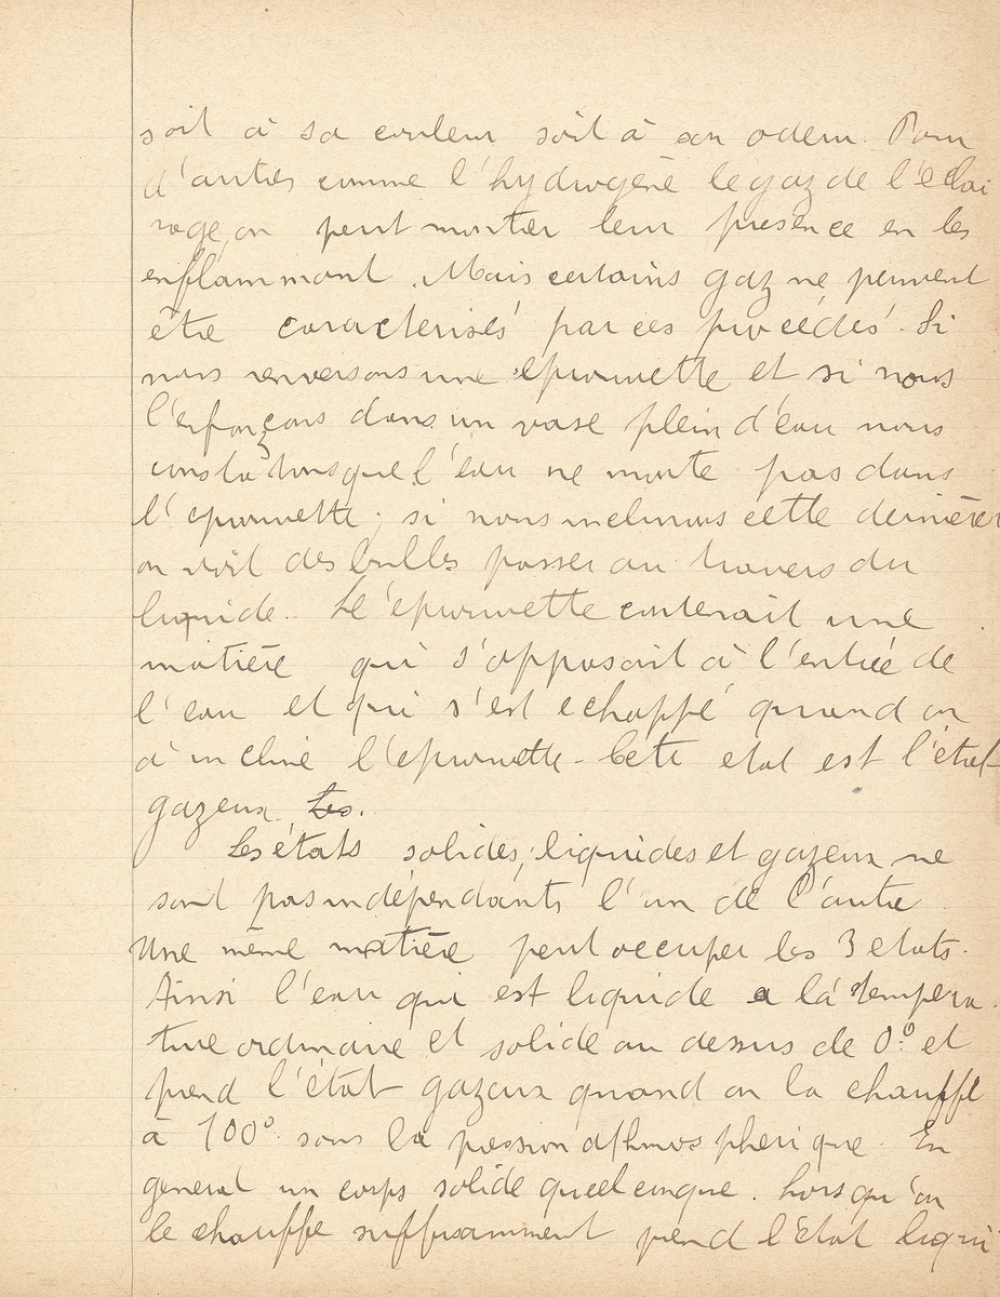 soit à sa couleur soit à son odeur. Pour
d'autres comme l'hydrogène le gaz de l'éclai
rage, on peut montrer leur présence en les
enflammant. Mais certains gaz ne peuvent
être caracterisés par ces procédés. Si
nous renversons une eprouvette et si nous
l'enfonçons dans un vase plein d'eau nous
constatons que l'eau ne monte pas dans
l'eprouvette; si nous inclinons cette dernière
on voit des bulles passer au travers du
liquide. Le'eprouvette contenait une
matière qui s'opposait à l'entrée de
l'eau et qui s'est echappé quand on
à incliné l'eprouvette. Cete etat est l'état
gazeux. Les.
Les états solides, liquides et gazeux ne
sont pas indépendants l'un de l'autre
Une même matière peut occuper les 3 etats.
Ainsi l'eau qui est liquide a la tempera
ture ordinaire et solide au dessus de 0° et
prend l'état gazeux quand on la chauffe
à 100° sous la pression athmospherique. En
general un corps solide quelconque. Lorsqu'on
le chauffe suffisamment prend l'état liqui